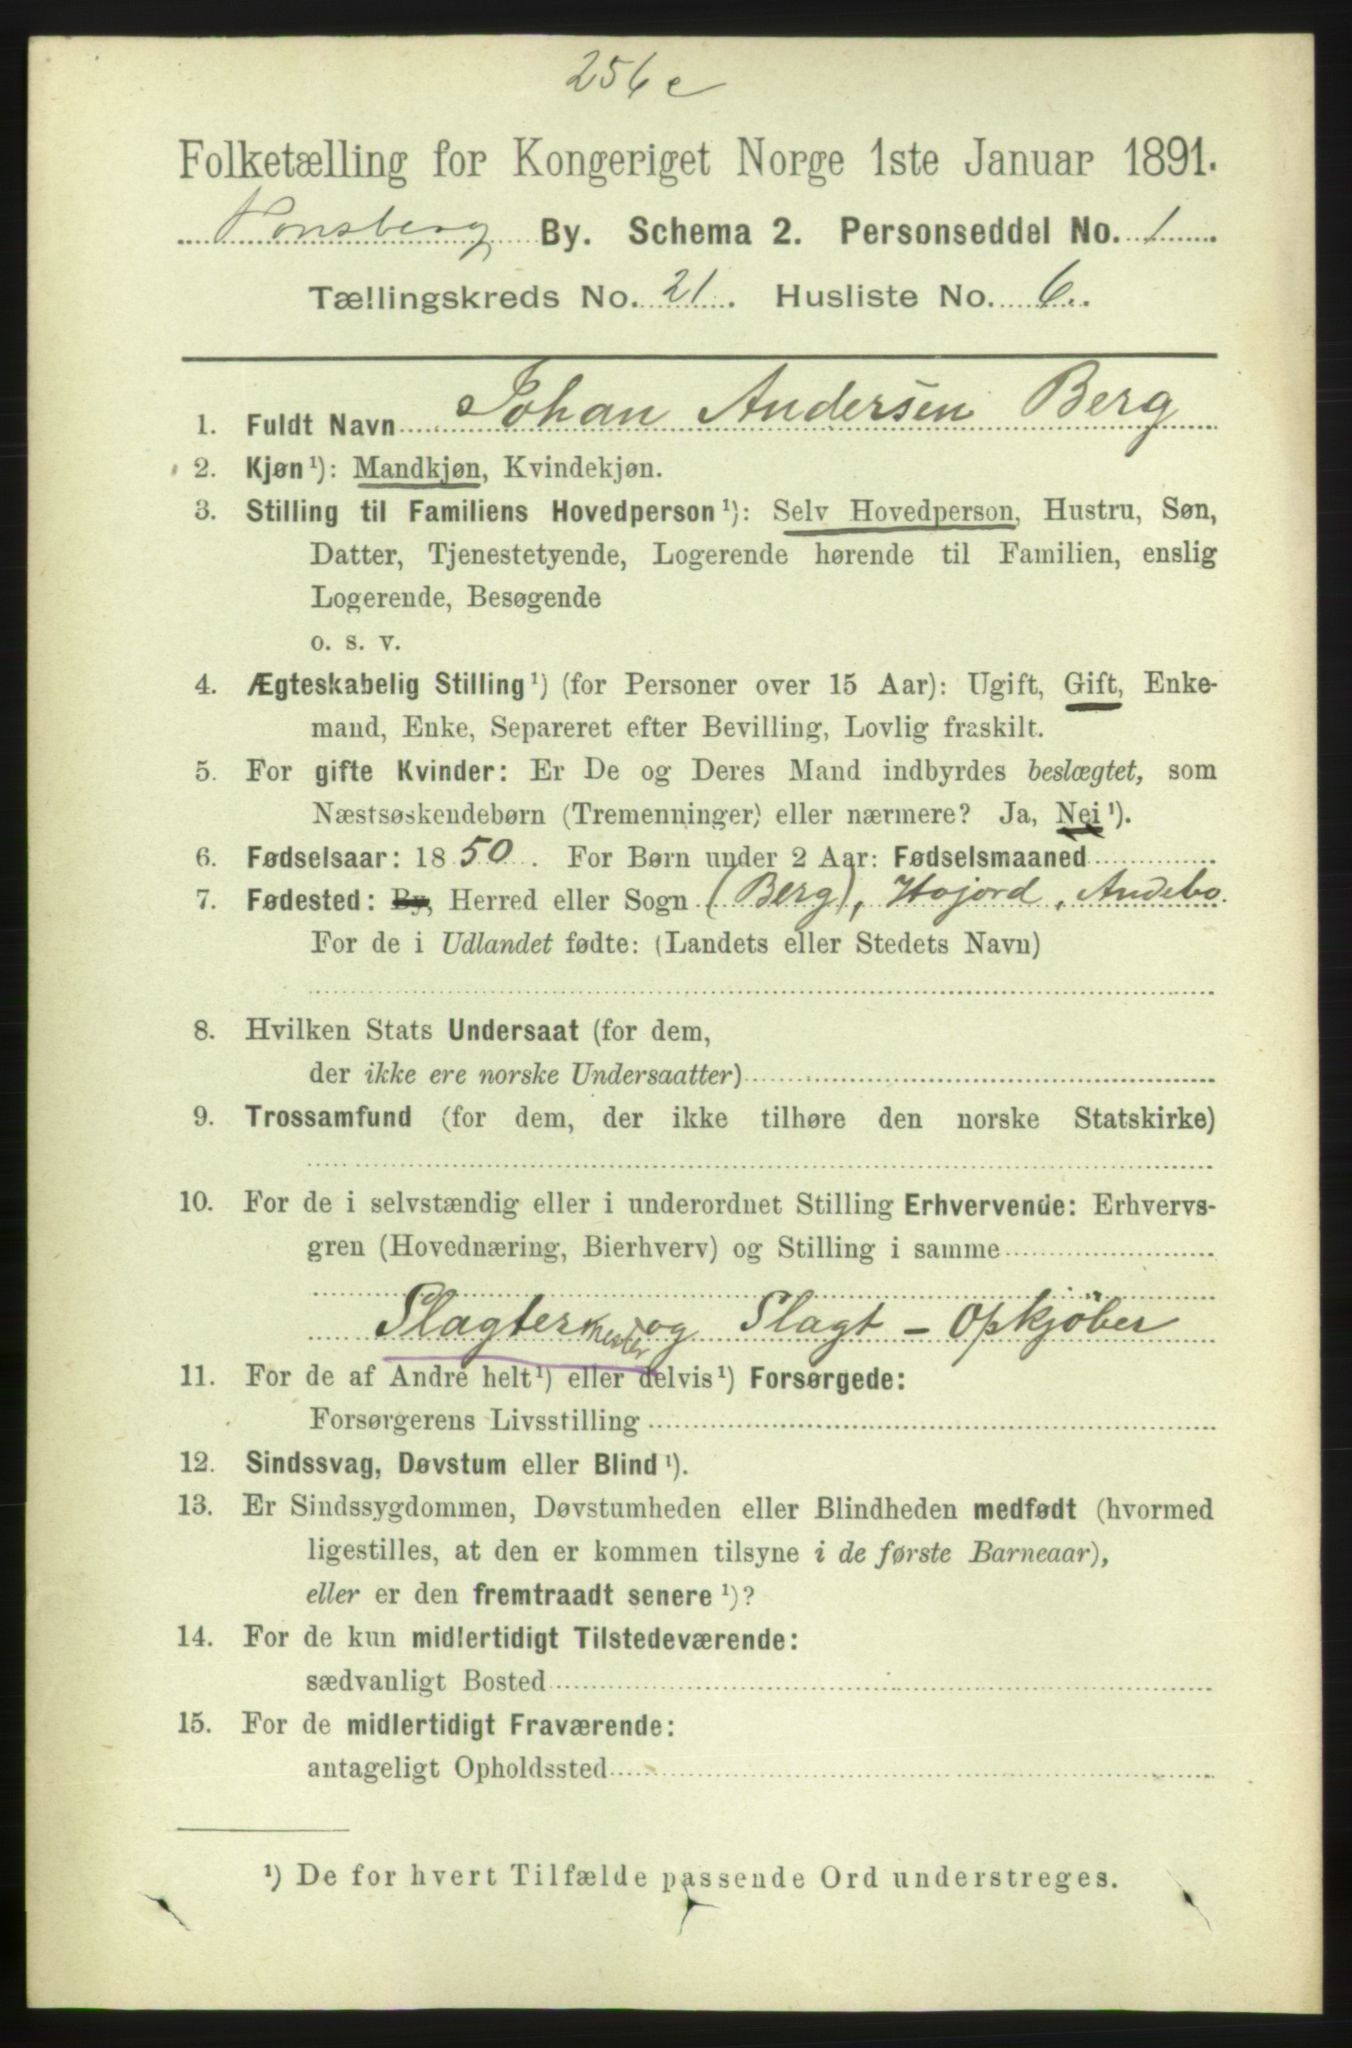 256 c
Folketælling for Kongeriget Norge 1ste Januar 1891.
Tønsberg By. Schema 2. Personseddel No. 1
Tællingskreds No. 21. Husliste No. 6.
1. Fuldt Navn Johan Andersen Berg
2. Kjøn ¹): Mandkjøn, Kvindekjøn.
3. Stilling til Familiens Hovedperson ¹): Selv Hovedperson, Hustru, Søn,
Datter, Tjenestetyende, Logerende hørende til Familien, enslig
Logerende, Besøgende
o. s. v.
4. Ægteskabelig Stilling ¹) (for Personer over 15 Aar): Ugift, Gift, Enke-
mand, Enke, Separeret efter Bevilling, Lovlig fraskilt.
5. For gifte Kvinder: Er De og Deres Mand indbyrdes beslægtet, som
Næstsøskendebørn (Tremenninger) eller nærmere? Ja, Nei ¹).
6. Fødselsaar: 1850. For Børn under 2 Aar: Fødselsmaaned
7. Fødested: By, Herred eller Sogn (Berg), Hojord, Andebo.
For de i Udlandet fødte: (Landets eller Stedets Navn)
8. Hvilken Stats Undersaat (for dem,
der ikke ere norske Undersaatter)
9. Trossamfund (for dem, der ikke tilhøre den norske Statskirke)
10. For de i selvstændig eller i underordnet Stilling Erhvervende: Erhvervs-
gren (Hovednæring, Bierhverv) og Stilling i samme
Slagter og Slagt - Opkjöber
11. For de af Andre helt ¹) eller delvis ¹) Forsørgede:
Forsørgerens Livsstilling
12. Sindssvag, Døvstum eller Blind ¹).
13. Er Sindssygdommen, Døvstumheden eller Blindheden medfødt (hvormed
ligestilles, at den er kommen tilsyne i de første Barneaar),
eller er den fremtraadt senere ¹)?
14. For de kun midlertidigt Tilstedeværende:
sædvanligt Bosted
15. For de midlertidigt Fraværende:
antageligt Opholdssted
¹) De for hvert Tilfælde passende Ord understreges.